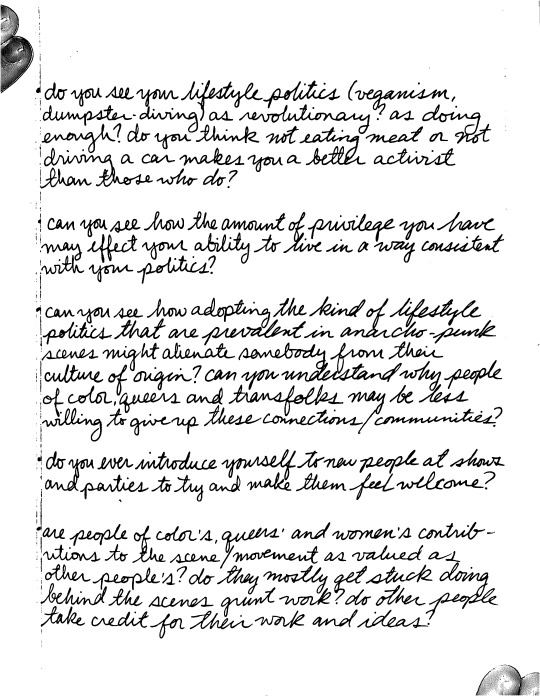 • do you see your lifestyle politics (veganism,
dumpster-diving) as revolutionary? as doing
enough? do you think not eating meat or not
driving a car makes you a better activist
than those who do?
• can you see how the amount of privilege you have
may effect your ability to live in a way consistent
with your politics?
• can you see how adopting the kind of lifestyle
politics that are prevalent in anarcho-punk
scenes might alienate somebody from their
culture of origin? can you understand why people
of color, queers and transfolks may be less
willing to give up these connections/communities?
• do you ever introduce yourself to new people at shows
and parties to try and make them feel welcome?
• are people of color's, queers' and women's contrib-
utions to the scene/movement as valued as
other people's? do they mostly get stuck doing
behind the scenes grunt work? do other people
take credit for their work and ideas?